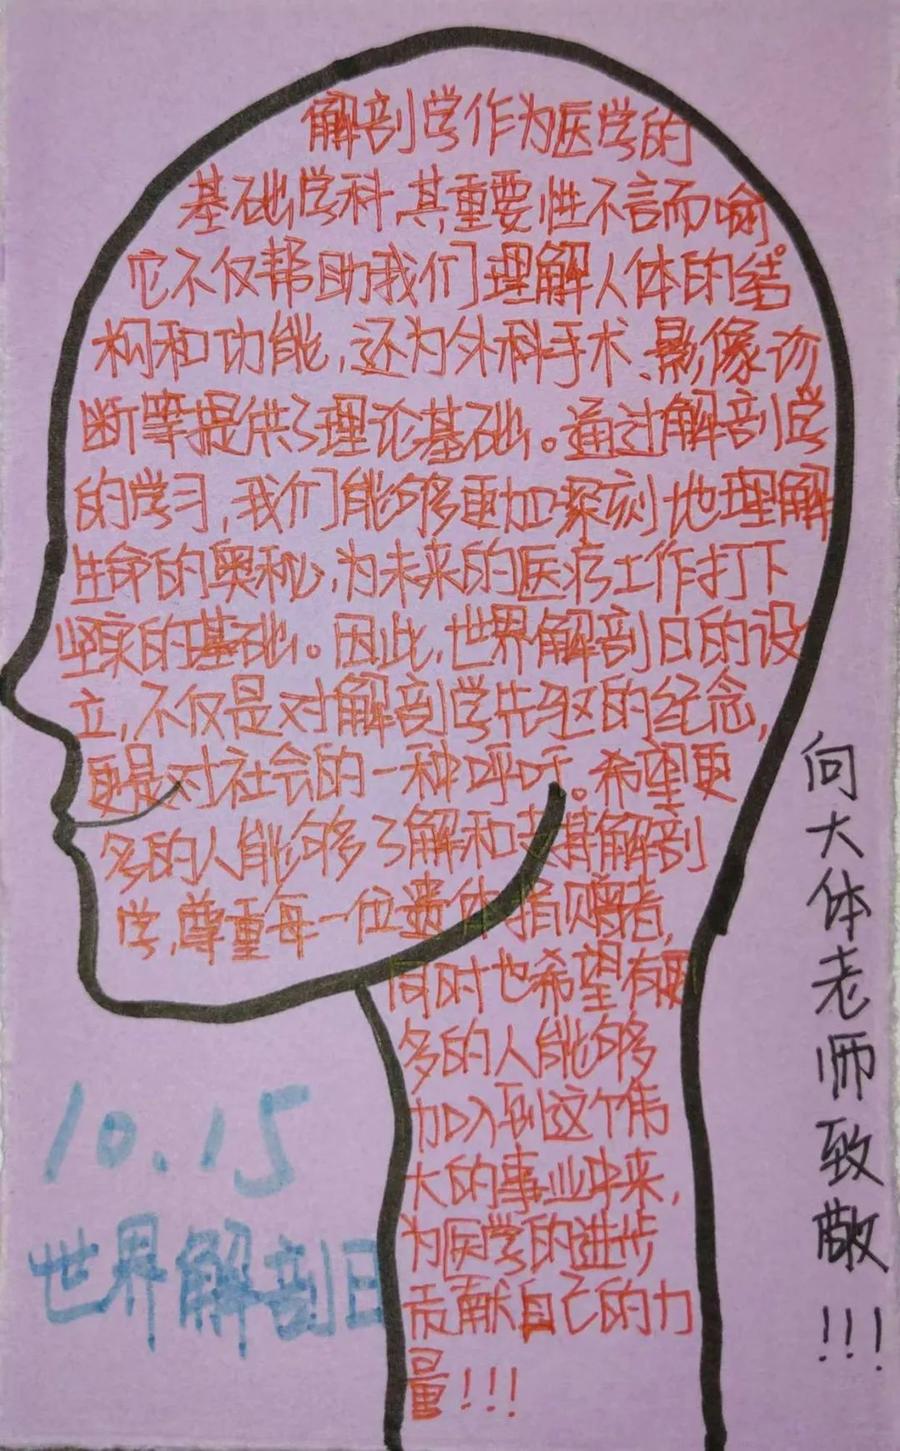 解剖学作为医学的
基础学科,其重要性不言而喻。
它不仅帮助我们理解人体的结
构和功能,还为外科手术、影像诊
断等提供了理论基础。通过解剖学
的学习,我们能够更加深刻地理解
生命的奥秘,为未来的医疗工作打下
坚实的基础。因此,世界解剖日的设
立,不仅是对解剖学先驱的纪念,
更是对社会的一种呼吁。希望更
多的人能够了解和支持解剖
学,尊重每一位遗体捐赠者,
同时也希望有更
多的人能够
加入到这个伟
大的事业中来,
为医学的进步
贡献自己的力
量!!!
向大体老师致敬!!!
10.15
世界解剖日